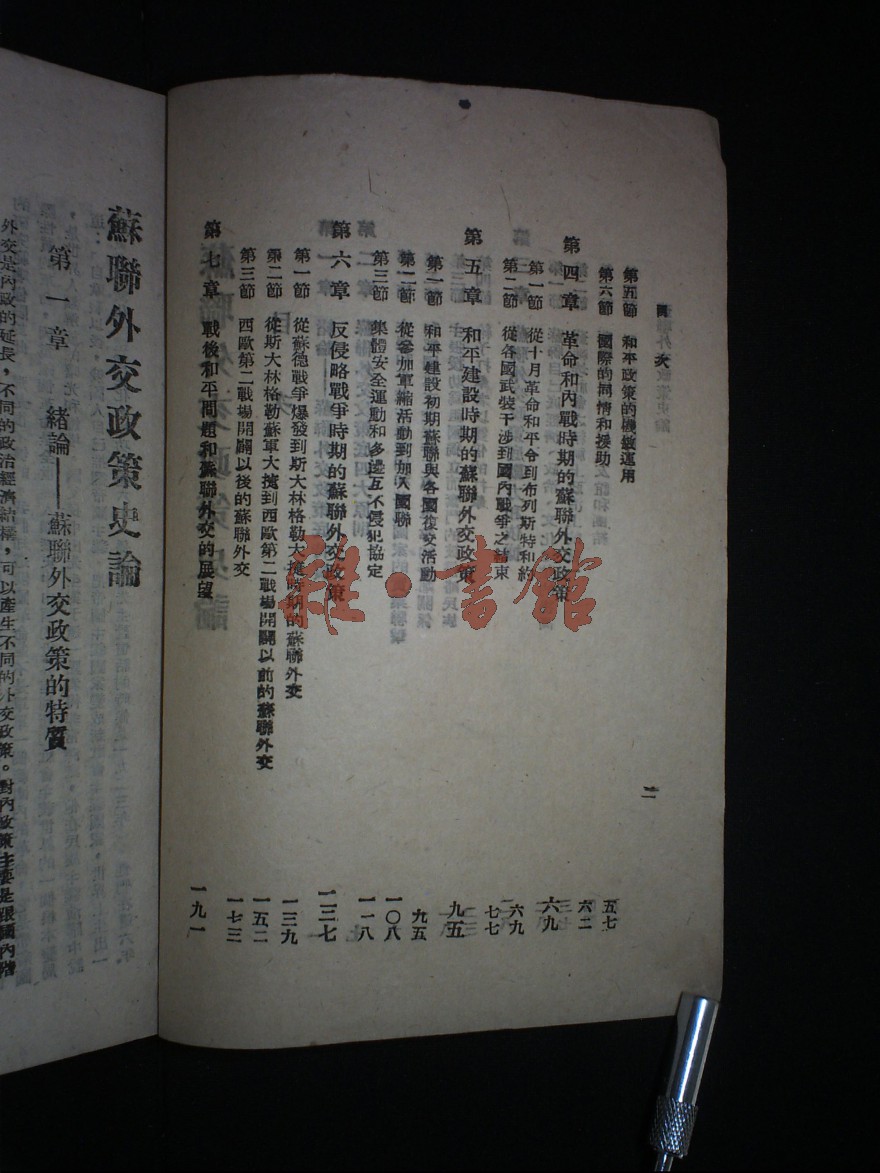 目次
二
第五節 和平政策的機敏運用 五七
第六節 國際的同情和援助 六二
第四章 革命和內戰時期的蘇聯外交政策 六九
第一節 從十月革命和平令到布列斯特和約 六九
第二節 從各國武裝干涉到國內戰爭之結束 七七
第五章 和平建設時期的蘇聯外交政策 九五
第一節 和平建設初期蘇聯與各國復交活動 九五
第二節 從參加軍縮活動到加入國聯 一〇八
第三節 集體安全運動和多邊互不侵犯協定 一一八
第六章 反侵略戰爭時期的蘇聯外交政策 一三七
第一節 從蘇德戰爭爆發到斯大林格勒大捷時期的蘇聯外交 一三九
第二節 從斯大林格勒蘇軍大捷到西歐第二戰場開闢以前的蘇聯外交 一五二
第三節 西歐第二戰場開闢以後的蘇聯外交 一七三
第七章 戰後和平問題和蘇聯外交的展望 一九一
雜·書館
蘇聯外交政策史論
第一章 緒論——蘇聯外交政策的特質
外交是內政的延長，不同的政治經濟結構，可以產生不同的外交政策。對內政策主要是跟國內階